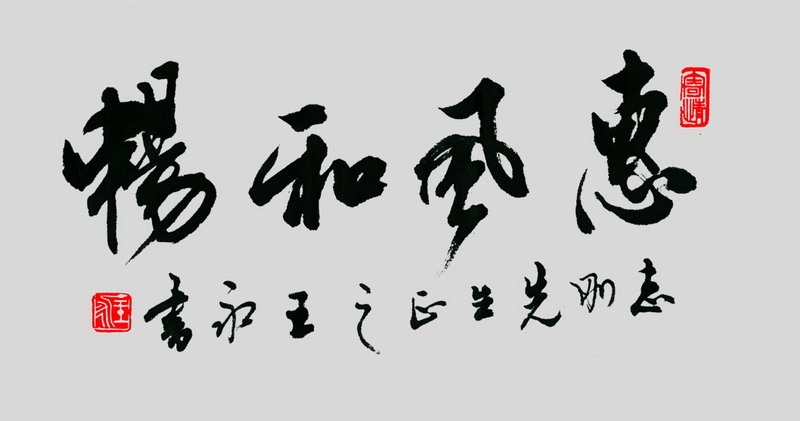 惠風和暢
志刚先生正之王永書